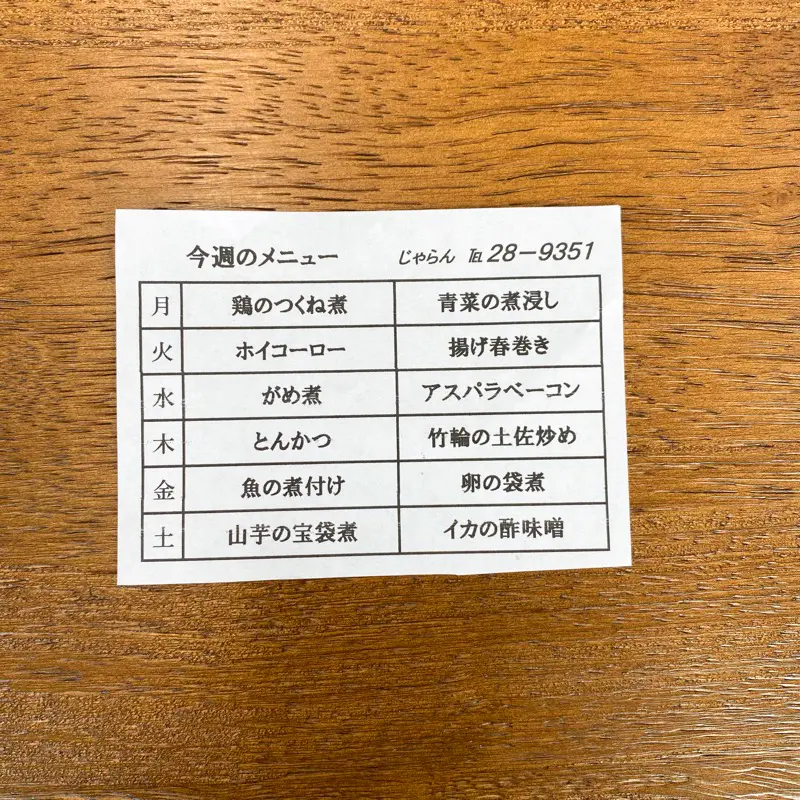 今週のメニュー じゃらん ℡28-9351
月 鶏のつくね煮 青菜の煮浸し
火 ホイコーロー 揚げ春巻き
水 がめ煮 アスパラベーコン
木 とんかつ 竹輪の土佐炒め
金 魚の煮付け 卵の袋煮
土 山芋の宝袋煮 イカの酢味噌